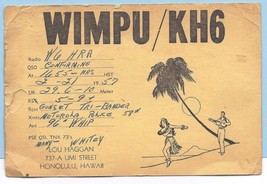 W1MPU/KH6
Radio W6 HRA
QSO CONFIRMING
At 1655 HRS HST
2-21 1957
On 29.6-10 Meter
RS 5-9+
Rcvr GONSET TRI-BANDER
Xmtr MOTOROLA POLICE
Ant 96" WHIP
PSE QSL TNX 73's
MANY - WHITEY
LOU HAGGAN
737-A UMI STREET
HONOLULU, HAWAII